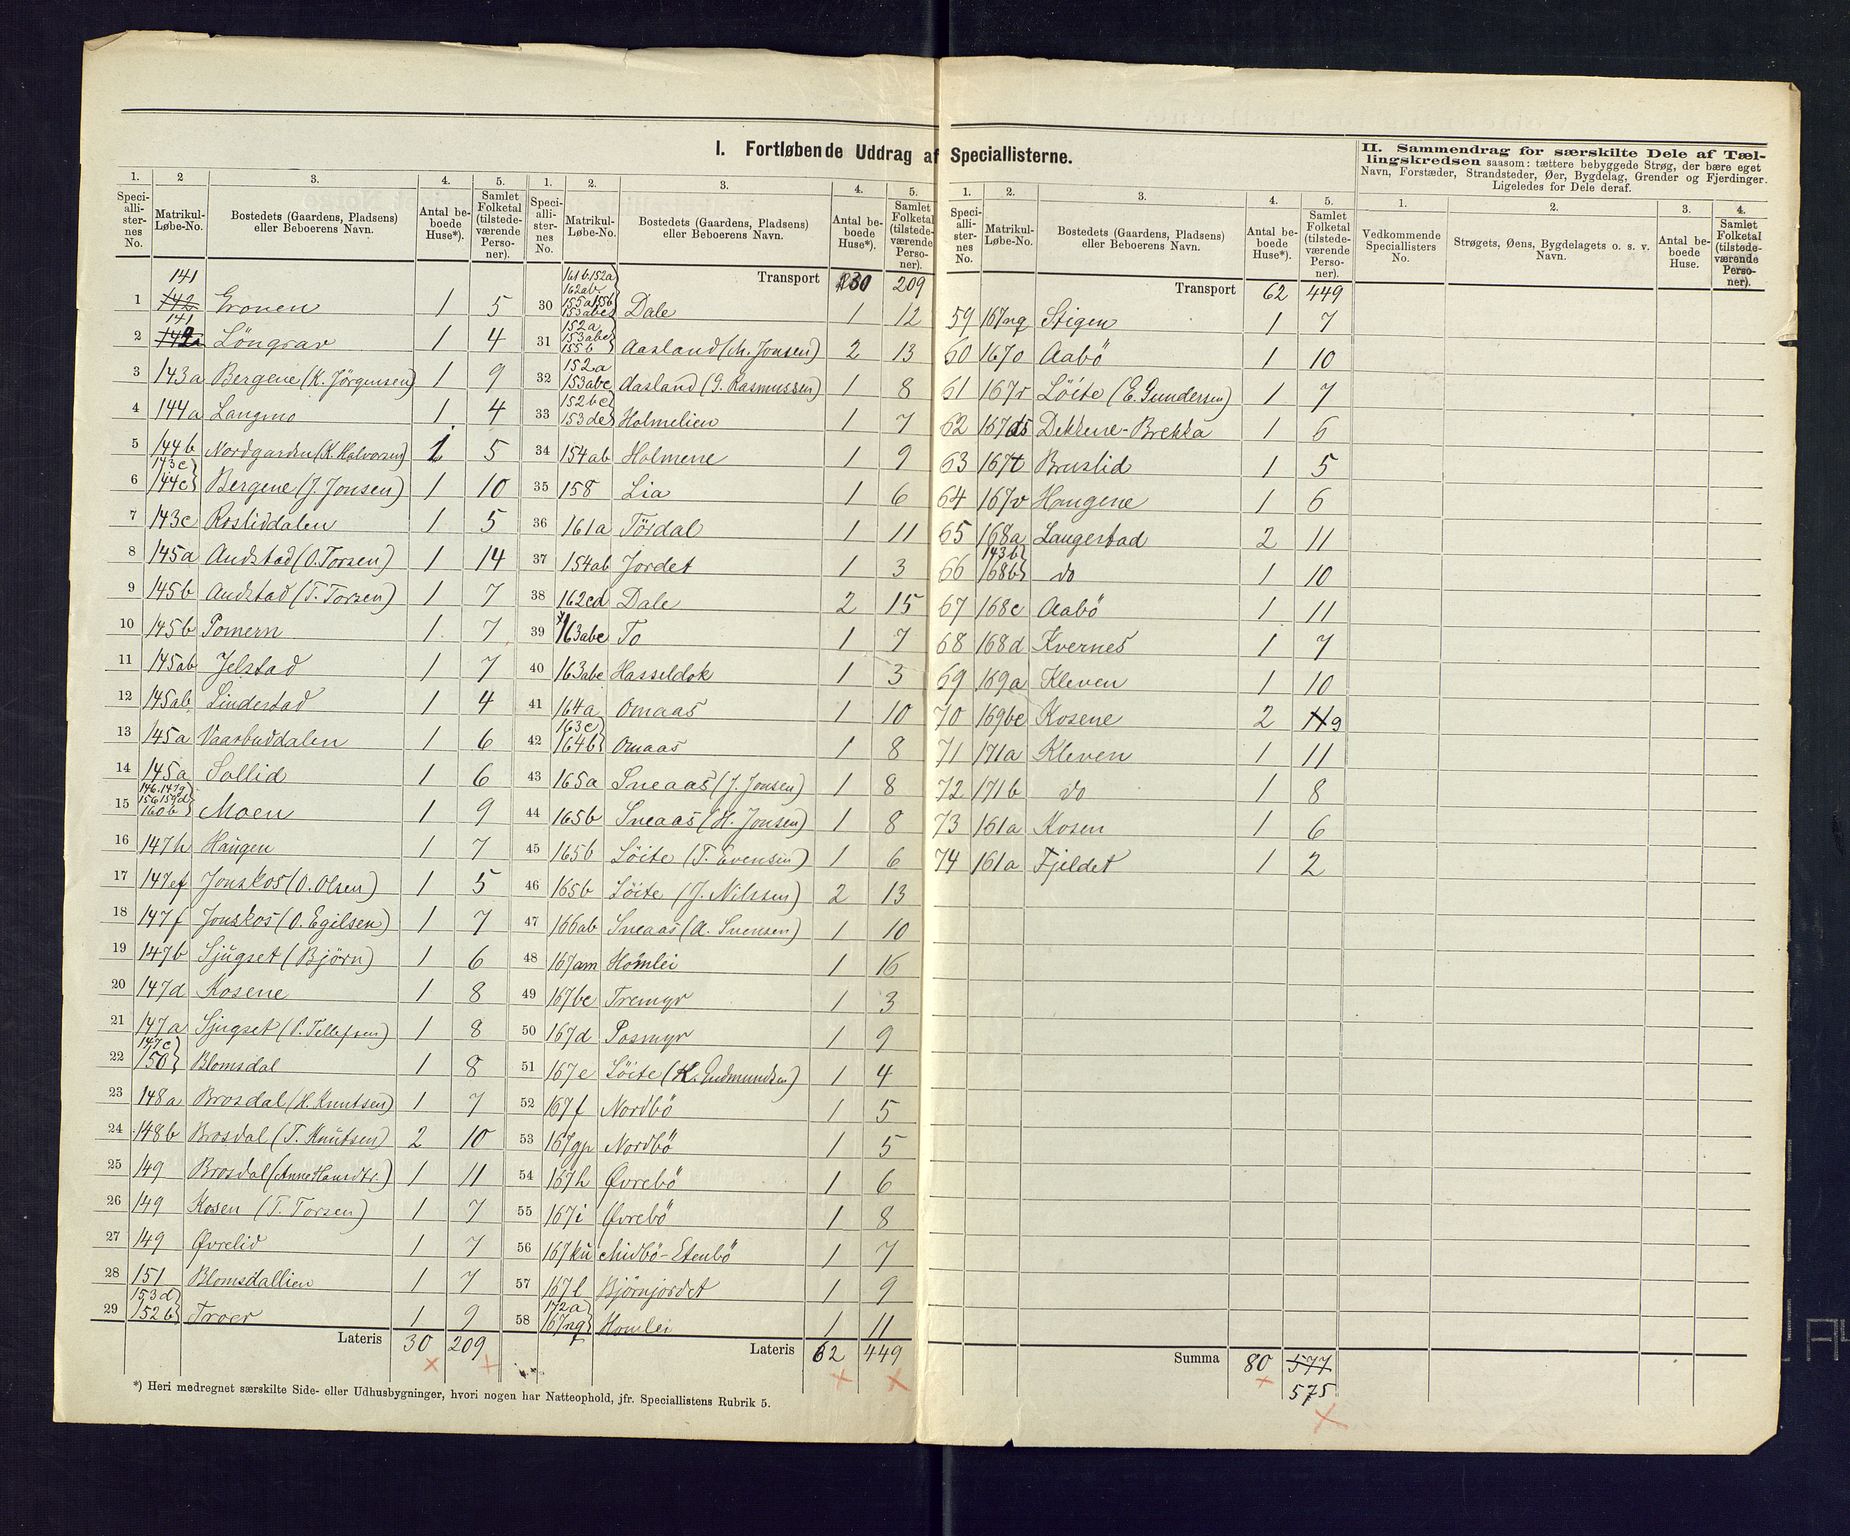 I. Fortløbende Uddrag af Speciallisterne.
II. Sammendrag for særskilte Dele af Tæl-
lingskredsen saasom: tættere bebyggede Strøg, der bære eget
Navn, Forstæder, Strandsteder, Øer, Bygdelag, Grender og Fjerdinger.
Ligeledes for Dele deraf.
1. 2 3. 4. 5.
Speciallisternes No. Matrikul-Løbe-No. Bostedets (Gaardens, Pladsens) eller Beboerens Navn. Antal beboede Huse*). Samlet Folketal (tilstedeværende Personer).
1 141 142 Gronen 1 5
2 141 142a Löngrav 1 4
3 143a Bergene (K. Jörgensen) 1 9
4 144a Langmo 1 4
5 144b Nordgarden (K. Halvorsen) 1 5
6 143c 144c Bergene (J. Jonsen) 1 10
7 143c Rosliddalen 1 5
8 145a Audstad (O. Torsen) 1 14
9 145b Audstad (T. Torsen) 1 7
10 145b Pomern 1 7
11 145ab Jelstad 1 7
12 145ab Lindestad 1 4
13 145a Vaarbuddalen 1 6
14 145a Sollid 1 6
15 146.147g 156 159d 160b Moen 1 9
16 147h Haugen 1 7
17 147ef Jonskos (O. Olsen) 1 5
18 147f Jonskos (O. Egilsen) 1 7
19 147b Sjugset (Björn) 1 6
20 147d Kosene 1 8
21 147a Sjugset (P. Tellefsen) 1 8
22 147c 150 Blomsdal 1 8
23 148a Brosdal (H. Knutsen) 1 7
24 148b Brosdal (T. Knutsen) 2 10
25 149 Brosdal (Anne Hansdtr.) 1 11
26 149 Kosen (T. Torsen) 1 7
27 149 Øvrelid 1 7
28 151 Blomsdallien 1 7
29 153d 152b Troer 1 9
Lateris 30 209
1. 2. 3. 4. 5.
Speciallisternes No. Matrikul-Løbe-No. Bostedets (Gaardens, Pladsens) eller Beboerens Navn. Antal beboede Huse*). Samlet Folketal (tilstedeværende Personer).
Transport 30 209
30 161b.152a 162ab 155a 155b 153abc Dale 1 12
31 152a 153abc 155b Aasland (M. Jonsen) 2 13
32 152a 153abc Aasland (G. Rasmussen) 1 8
33 152bc 153de Holmelien 1 7
34 154ab Holmene 1 9
35 158 Lia 1 6
36 161a Tördal 1 11
37 154ab Jordet 1 3
38 162cd Dale 2 15
39 163abc To 1 7
40 163abc Hasseldok 1 3
41 164a Omaas 1 10
42 163c 164b Omaas 1 8
43 165a Sneaas (J. Jonsen) 1 8
44 165b Sneaas (H. Jonsen) 1 8
45 165b Löite (T. Evensen) 1 6
46 165b Löite (J. Nilssen) 2 13
47 166ab Sneaas (A. Svensen) 1 10
48 167am Homlei 1 16
49 167bc Tremyr 1 3
50 167d Posmyr 1 9
51 167e Löite (K. Gudmundsen) 1 4
52 167f Nordbö 1 5
53 167gp Nordbö 1 5
54 167h Øvrebö 1 6
55 167i Øvrebö 1 8
56 167ku Midbö-Etenbö 1 7
57 167l Björnjordet 1 9
58 172a 167nq Homlei 1 11
Lateris 62 449
*) Heri medregnet særskilte Side- eller Udhusbygninger, hvori nogen har Natteophold, jfr. Speciallistens Rubrik 5.
1. 2. 3. 4. 5.
Speciallisternes No. Matrikul-Løbe-No. Bostedets (Gaardens, Pladsens) eller Beboerens Navn. Antal beboede Huse*). Samlet Folketal (tilstedeværende Personer).
Transport 62 449
59 167nq Stigen 1 7
60 167o Aabö 1 10
61 167r Löite (E. Gundersen) 1 7
62 167ds Dekkene-Brekka 1 6
63 167t Bruslid 1 5
64 167v Haugene 1 6
65 168a Laugestad 2 11
66 143b 168b do 1 10
67 168c Aabö 1 11
68 168d Kvernes 1 7
69 169a Kleven 1 10
70 169bc Kosene 2 11 9
71 171a Kleven 1 11
72 171b do 1 8
73 161a Kosen 1 6
74 161a Fjeldet 1 2
Summa 80 577
575
1. 2. 3. 4.
Vedkommende Speciallisters No. Strøgets, Øens, Bygdelagets o. s. v. Navn. Antal beboede Huse. Samlet Folketal (tilstedeværende Personer).